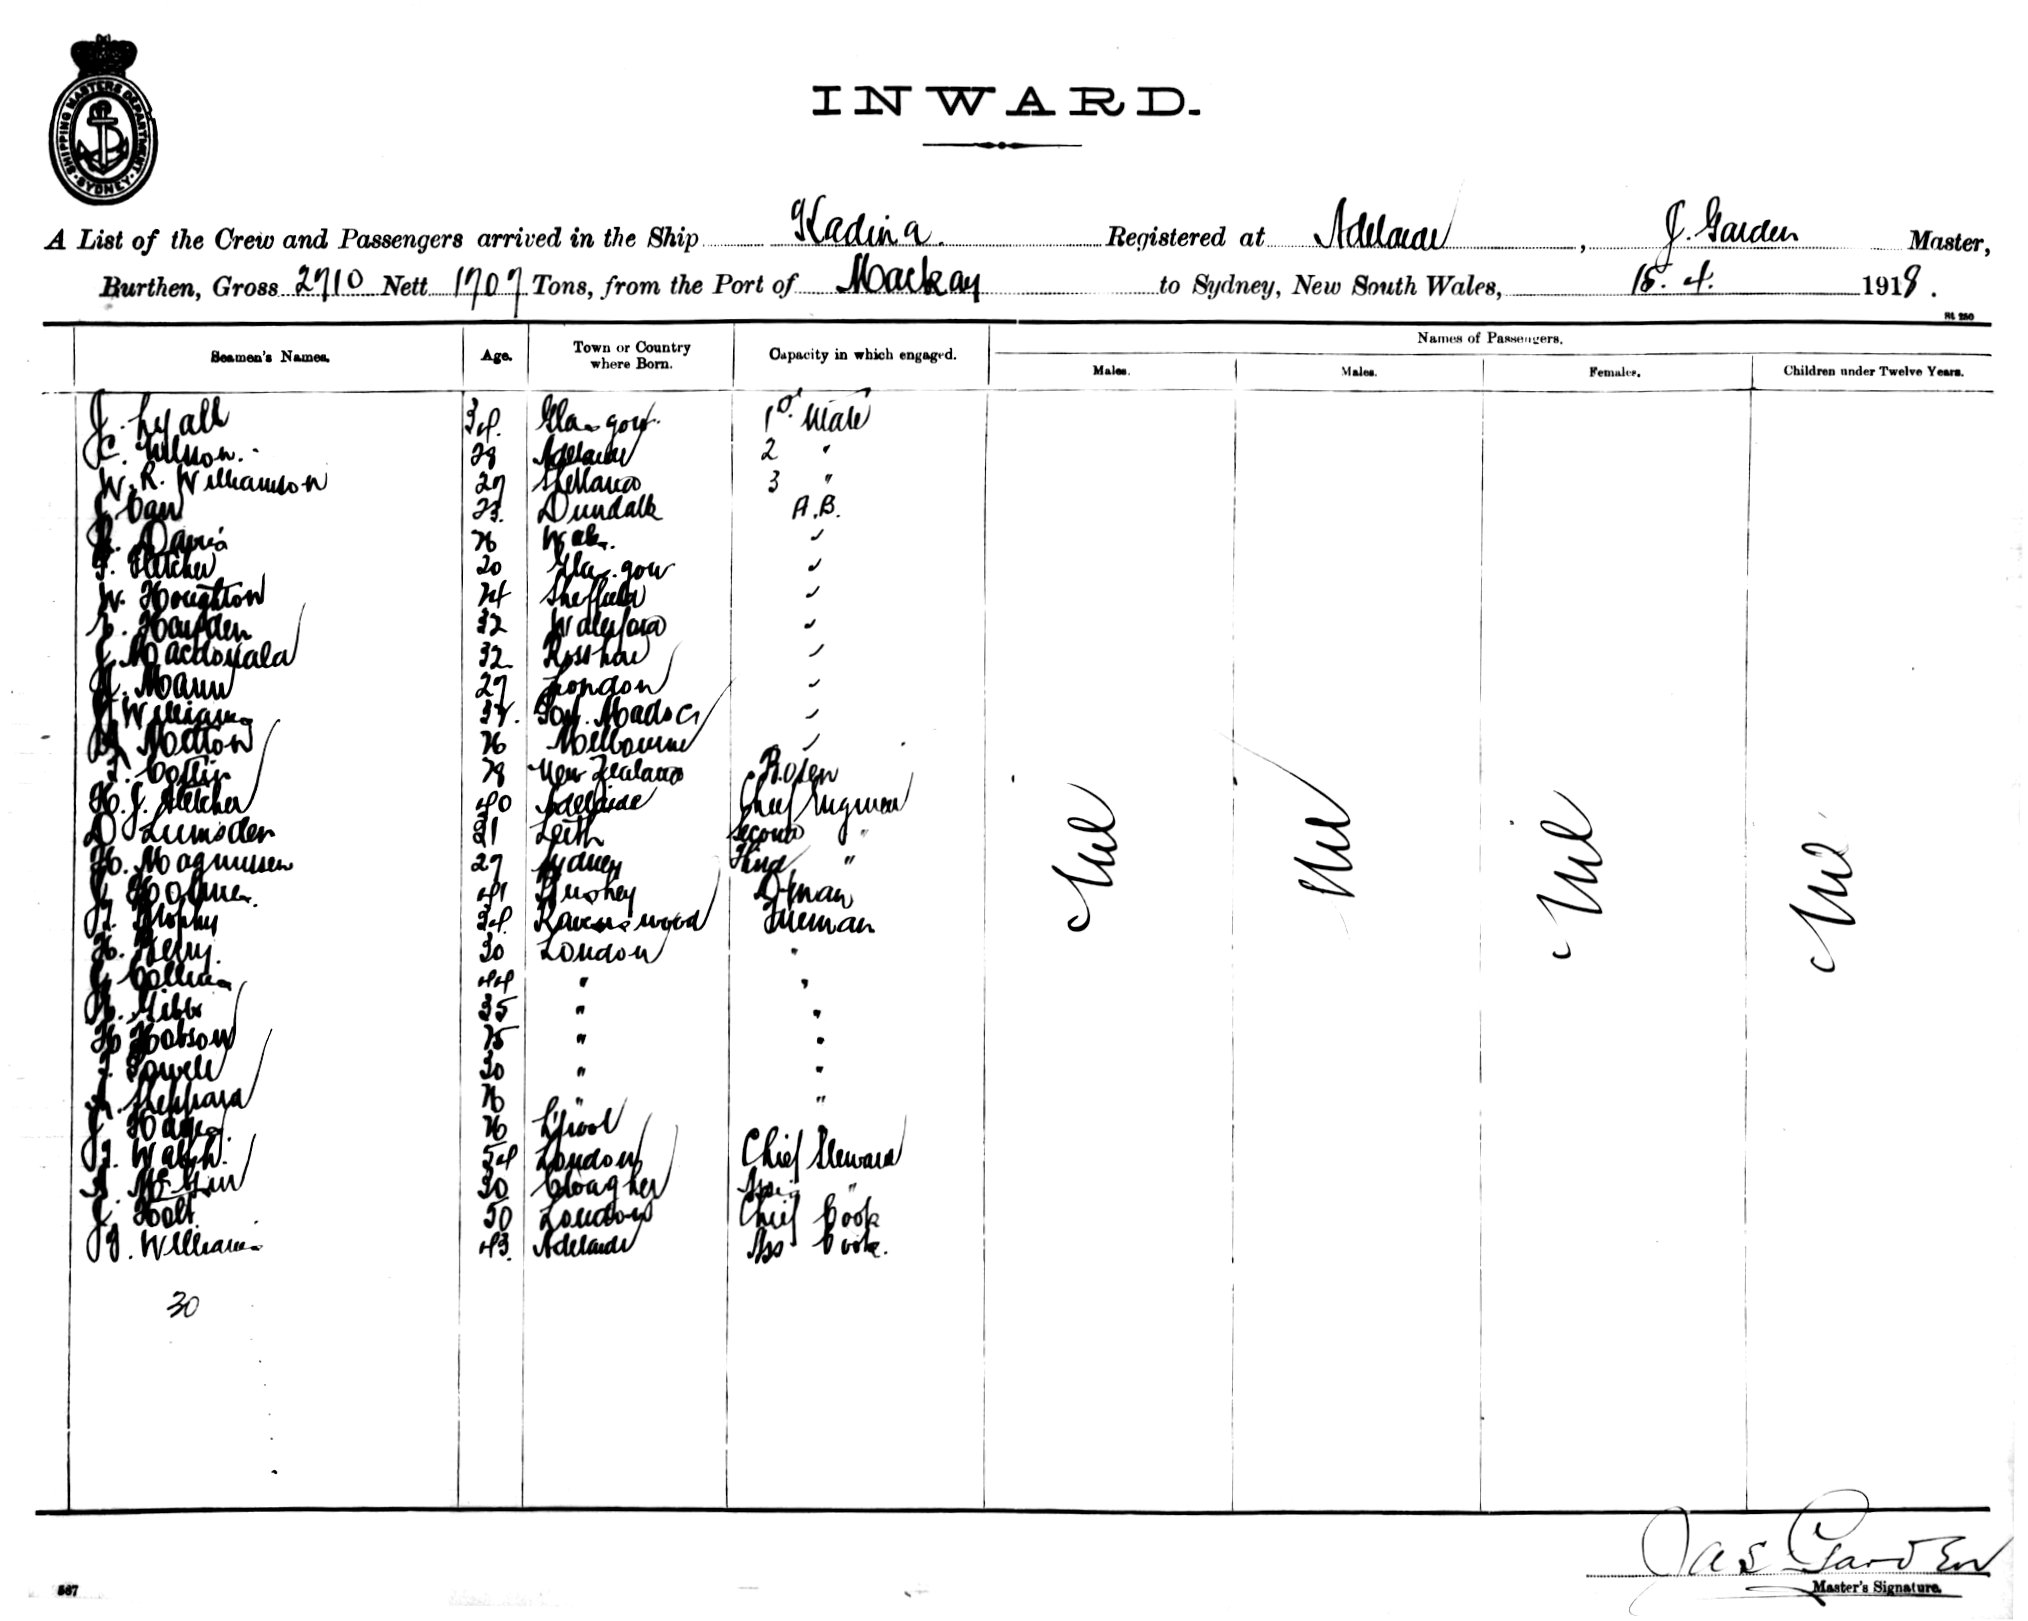 SHIPPING MASTERS DEPARTMENT
SYDNEY
INWARD.
A List of the Crew and Passengers arrived in the Ship Kadina Registered at Adelaide, J. Garden Master,
Burthen, Gross 2710 Nett 1707 Tons, from the Port of Mackay to Sydney, New South Wales, 4. 1918.
St 250
Seamen's Names. Age. Town or Country where Born. Capacity in which engaged. Names of Passengers.
Males. Males. Females. Children under Twelve Years.
J. Lyall 34. Glasgow 1st Mate
28 Adelaide 2 "
W. R. Williamson 27 Shetland 3 "
23. Dundalk A.B.
Davis 26 Wales
F. Fletcher 20 Glasgow
W. Houghton 24 Sheffield
Hayden 32 Waterford
J. Macdonald 32 Rosshire
Mann 27 London
Williams 34. Port Madoc
26 Melbourne
28 New Zealand Bosen
H. J. Fletcher 40 Adelaide Chief Engineer
D Lumsden 21 Leith Second "
H. Magnussen 27 Sydney Third "
Holmes 41 D'kman
Brophy 34. Ravenswood Fireman
H. Berry. 30 London "
Collins 44 " "
Gibbs 35 " "
H Hobson 25 " "
Powell 30 " "
Sheppard 26 " "
J. Hayes 26 L'pool
Walsh. 54 London Chief Steward
30 Clogher "
J. Holt 50 London Chief Cook
Williams 43. Adelaide Ass Cook.
Nil Nil Nil Nil
30
Jas Garden
Master's Signature.
567